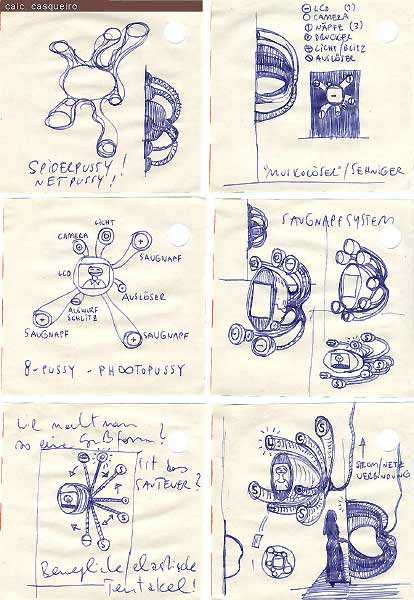 calc casqueiro
SPIDERPUSSY!
NETPUSSY!
LCD (1)
CAMERA
NÄPFE (3)
DRUCKER
LICHT/BLITZ
AUSLÖSER
"MUSKOLÖSER"/SEHNIGER
LICHT
CAMERA
SAUGNAPF
LCD
AUSLÖSER
AUSWURF
SCHLITZ
SAUGNAPF
SAUGNAPF
8-PUSSY - PHOOTOPUSSY
SAUGNAPFSYSTEM
Wie macht man
so eine Gußform?
Ist das
SAUTEUER?
Bewegliche/elastische
Tentakel!
STROM/NETZ
VERBINDUNG